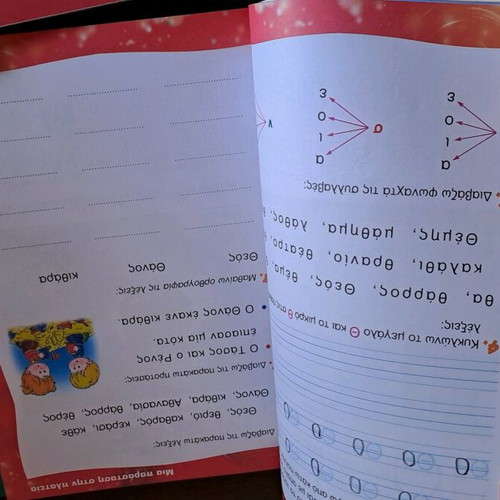 Κυκλώνω το μεγάλο Θ και το μικρό θ
λέξεις:
θα, θάρρος, Θεός, θέμα,
καλάθι, θρανίο, θέατρο,
Θέμης, μάθημα, λάθος,
Διαβάζω φωναχτά τις συλλαβές:
α α
ι ι
σ
ο ο
ε ε
Μια παράσταση στην πλατεία
Διαβάζω τις παρακάτω λέξεις:
Θεός, θεριό, καθαρός, κεράσι, κάθε
Θάνος, κιθάρα, Αθανασία, θάρρος, θέρος
Διαβάζω τις παρακάτω προτάσεις:
Ο Τάσος και ο Ρένος
έπιασαν μία κότα.
Ο Θάνος έκανε κιθάρα.
Μαθαίνω ορθογραφία τις λέξεις:
Θεός Θάνος κιθάρα
ν